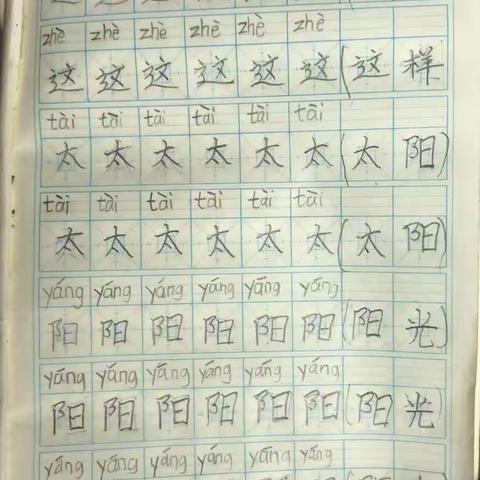 zhè zhè zhè zhè zhè zhè
这 这 这 这 这 这 (这 样
tài tài tài tài tài tài
太 太 太 太 太 太 (太 阳)
tài tài tài tài tài tài
太 太 太 太 太 太 (太 阳)
yáng yáng yáng yáng yáng yáng
阳 阳 阳 阳 阳 阳 (阳 光)
yáng yáng yáng yáng yáng yáng
阳 阳 阳 阳 阳 阳 (阳 光)
yáng yáng yáng yáng yáng yáng